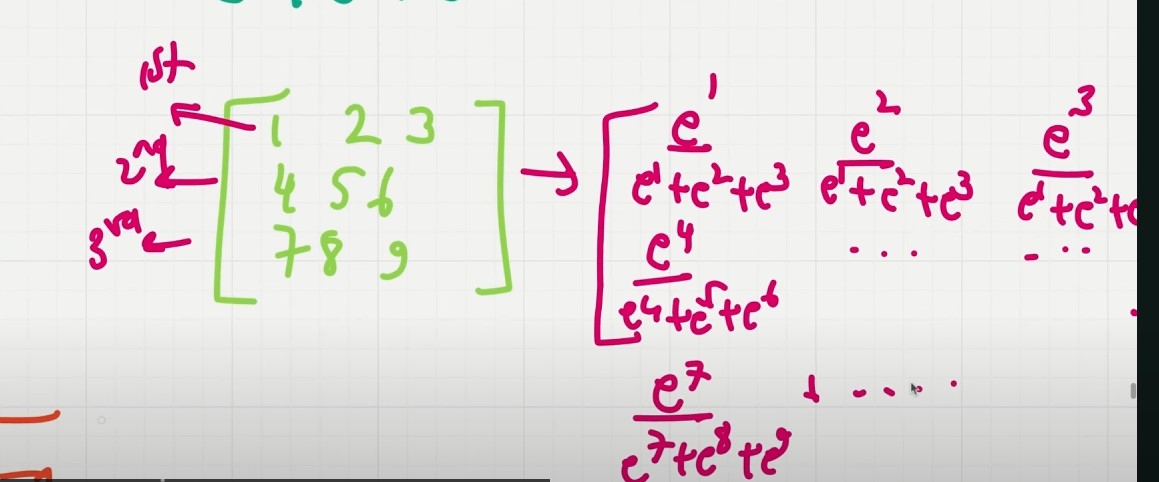 1st
2nd
3rd
1 2 3
4 5 6
7 8 9
e^1 e^2 e^3
e^1+e^2+e^3 e^1+e^2+e^3 e^1+e^2+e
e^4 ... ...
e^4+e^5+e^6
e^7
e^7+e^8+e^9